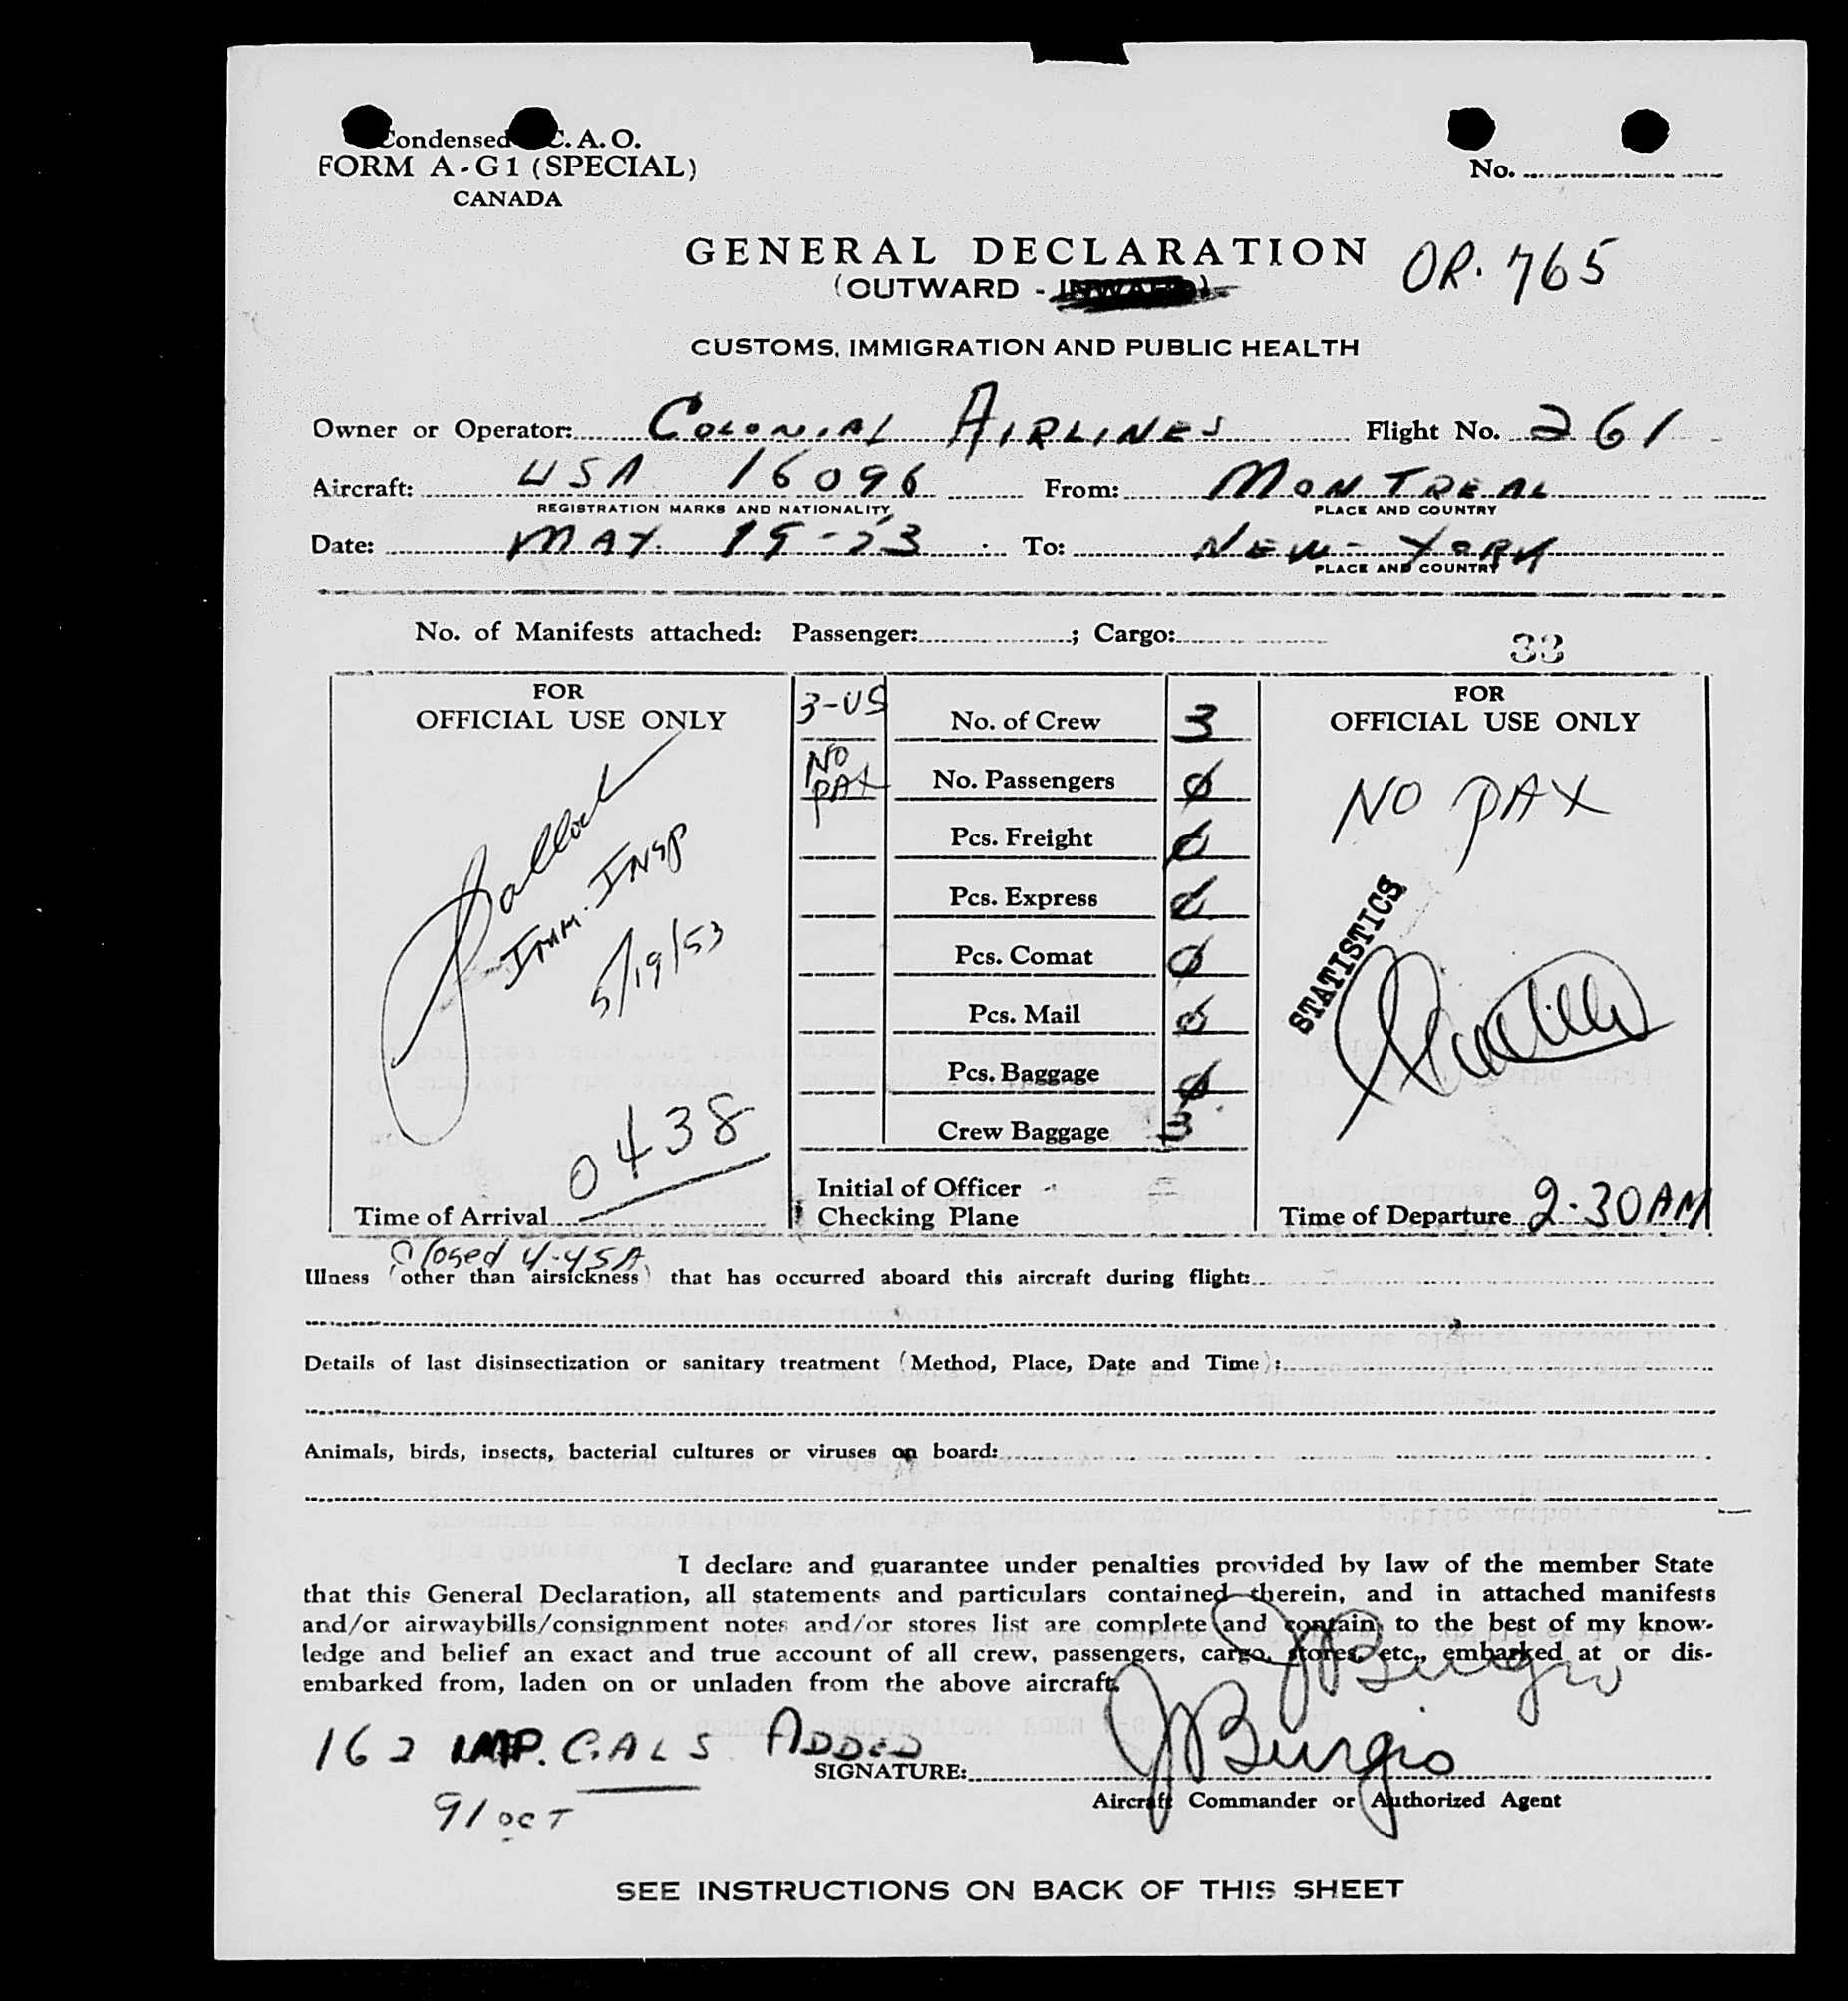 Condensed C. A. O.
FORM A-G1 (SPECIAL)
CANADA
No.
GENERAL DECLARATION
(OUTWARD - INWARD)
OR. 765
CUSTOMS, IMMIGRATION AND PUBLIC HEALTH
Owner or Operator: COLONIAL AIRLINES Flight No. 261
Aircraft: USA 16096 From: MONTREAL
REGISTRATION MARKS AND NATIONALITY PLACE AND COUNTRY
Date: MAY 19-53 To: NEW-YORK
PLACE AND COUNTRY
No. of Manifests attached: Passenger: ; Cargo:
33
FOR
OFFICIAL USE ONLY
IMM. INSP
5/19/53
0438
Time of Arrival
3-US No. of Crew 3
NO PAX No. Passengers Ø
Pcs. Freight Ø
Pcs. Express Ø
Pcs. Comat Ø
Pcs. Mail Ø
Pcs. Baggage Ø
Crew Baggage 3
Initial of Officer
Checking Plane
FOR
OFFICIAL USE ONLY
NO PAX
STATISTICS
Time of Departure 2.30 AM
Closed 4.45A
Illness (other than airsickness) that has occurred aboard this aircraft during flight:
Details of last disinsectization or sanitary treatment (Method, Place, Date and Time):
Animals, birds, insects, bacterial cultures or viruses on board:
I declare and guarantee under penalties provided by law of the member State
that this General Declaration, all statements and particulars contained therein, and in attached manifests
and/or airwaybills/consignment notes and/or stores list are complete and contain to the best of my know-
ledge and belief an exact and true account of all crew, passengers, cargo, stores, etc., embarked at or dis-
embarked from, laden on or unladen from the above aircraft.
JBurgio
162 IMP. GALS ADDED
SIGNATURE: JBurgio
91 OCT
Aircraft Commander or Authorized Agent
SEE INSTRUCTIONS ON BACK OF THIS SHEET